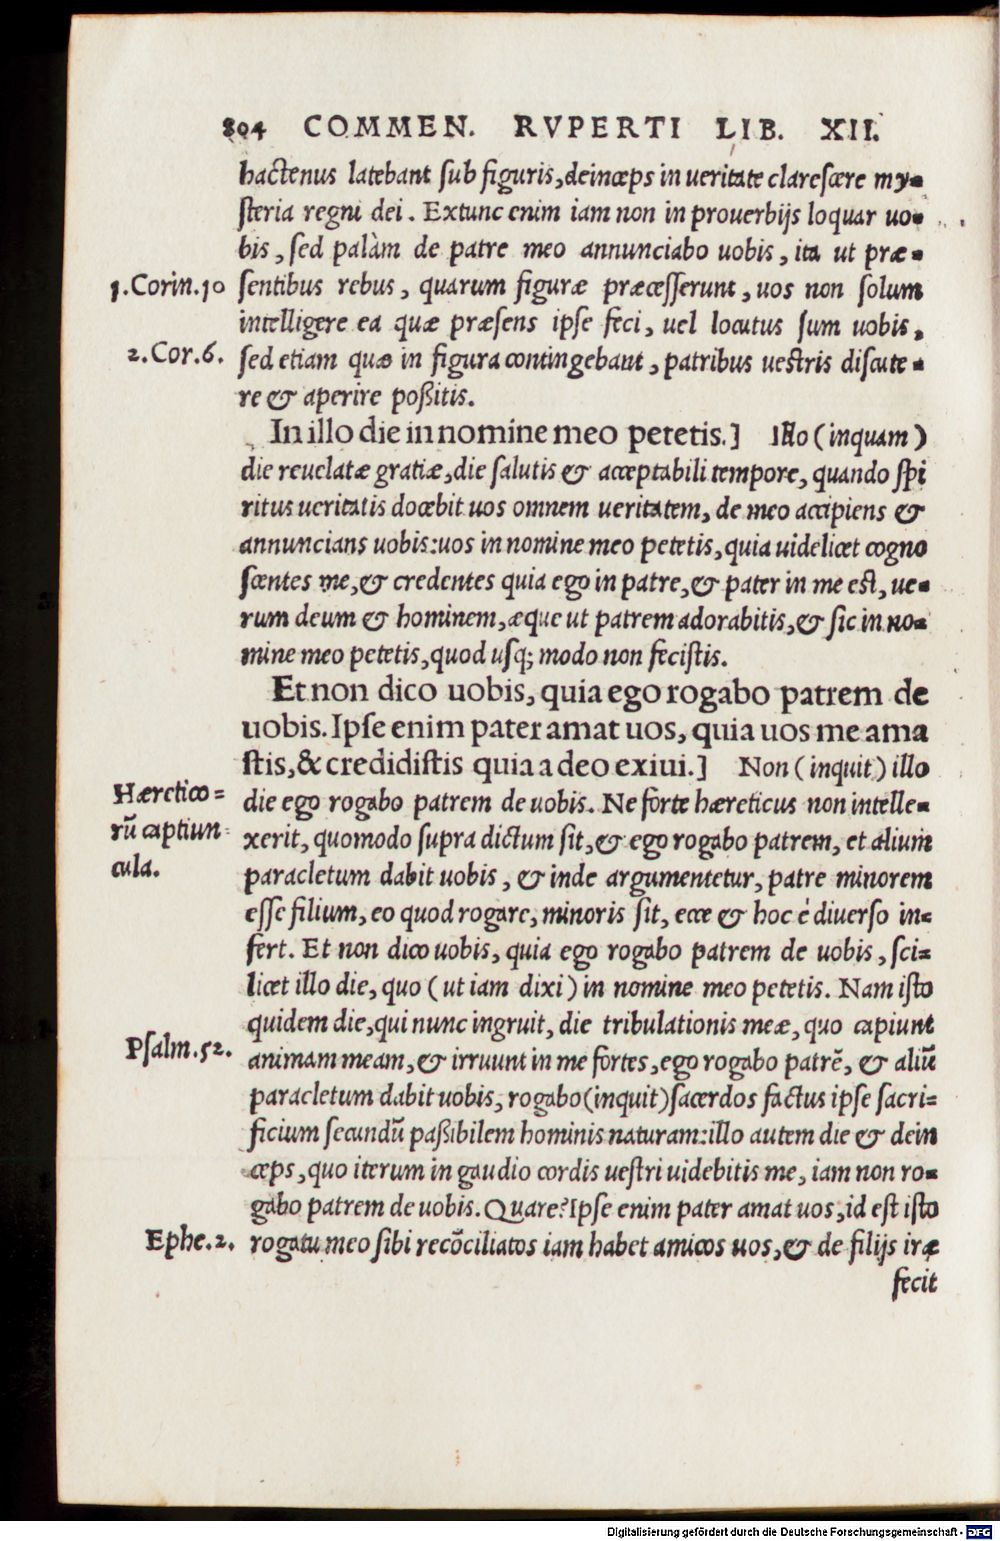 804 COMMEN. RVPERTI LIB. XII.
hactenus latebant sub figuris, deinceps in ueritate clarescere my-
steria regni dei. Extunc enim iam non in prouerbijs loquar uo-
bis, sed palàm de patre meo annunciabo uobis, ita ut præ-
1. Corin. 10
sentibus rebus, quarum figuræ præcesserunt, uos non solum
intelligere ea quæ præsens ipse feci, uel locutus sum uobis,
2. Cor. 6.
sed etiam quæ in figura contingebant, patribus uestris discute-
re & aperire poßitis.
In illo die in nomine meo petetis.] Illo (inquam)
die reuelatæ gratiæ, die salutis & acceptabili tempore, quando spi
ritus ueritatis docebit uos omnem ueritatem, de meo accipiens &
annuncians uobis: uos in nomine meo petetis, quia uidelicet cogno
scentes me, & credentes quia ego in patre, & pater in me est, ue-
rum deum & hominem, æque ut patrem adorabitis, & sic in no-
mine meo petetis, quod usq; modo non fecistis.
Et non dico uobis, quia ego rogabo patrem de
uobis. Ipse enim pater amat uos, quia uos me ama
stis, & credidistis quia a deo exiui.] Non (inquit) illo
Hæretico-
rũ captiun-
cula.
die ego rogabo patrem de uobis. Ne forte hæreticus non intelle-
xerit, quomodo supra dictum sit, & ego rogabo patrem, et alium
paracletum dabit uobis, & inde argumentetur, patre minorem
esse filium, eo quod rogare, minoris sit, ecce & hoc è diuerso in-
fert. Et non dico uobis, quia ego rogabo patrem de uobis, sci-
licet illo die, quo (ut iam dixi) in nomine meo petetis. Nam isto
quidem die, qui nunc ingruit, die tribulationis meæ, quo capiunt
Psalm. 52.
animam meam, & irruunt in me fortes, ego rogabo patrẽ, & aliũ
paracletum dabit uobis, rogabo (inquit) sacerdos factus ipse sacri-
ficium secundũ paßibilem hominis naturam: illo autem die & dein
ceps, quo iterum in gaudio cordis uestri uidebitis me, iam non ro-
gabo patrem de uobis. Quare? Ipse enim pater amat uos, id est isto
Ephe. 2.
rogatu meo sibi recõciliatos iam habet amicos uos, & de filijs iræ
fecit
Digitalisierung gefördert durch die Deutsche Forschungsgemeinschaft - DFG